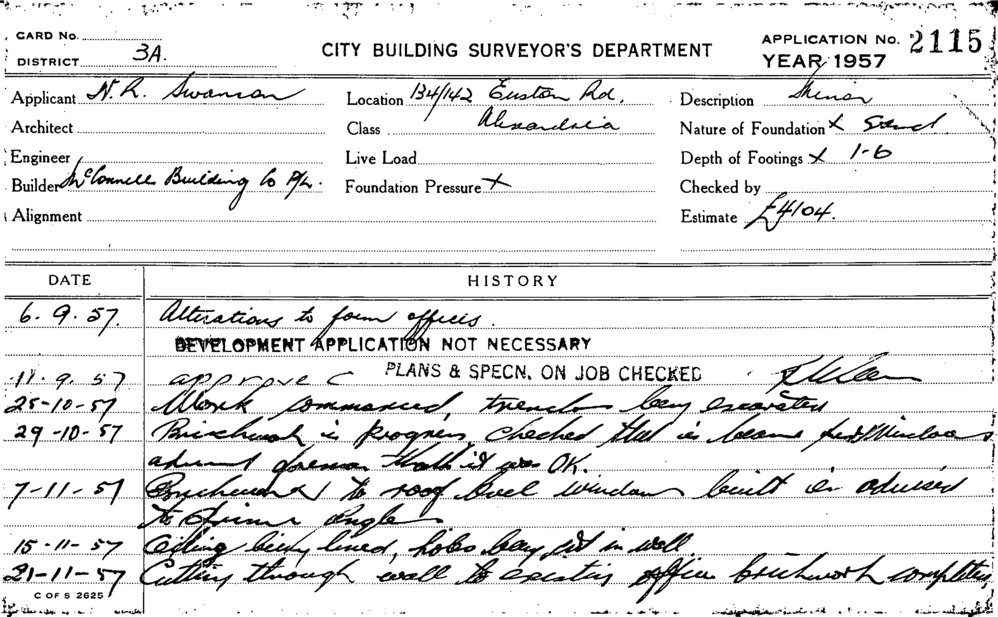 CARD No.
DISTRICT 3A.
CITY BUILDING SURVEYOR'S DEPARTMENT
APPLICATION No. 2115
YEAR 1957
Applicant N. R. Swanson
Location 134/142 Euston Rd,
Description Minor
Architect
Class Alexandria
Nature of Foundation X Sand
Engineer
Live Load
Depth of Footings X 1-6
Builder McConnell Building Co P/L.
Foundation Pressure X
Checked by
Alignment
Estimate £4104.
DATE
HISTORY
6. 9. 57. Alterations to form offices.
DEVELOPMENT APPLICATION NOT NECESSARY
11. 9. 57 approved PLANS & SPECN. ON JOB CHECKED
25-10-57 Work commenced, trenches being excavated
29-10-57 Brickwork in progress, checked
foreman it was OK.
7-11-57 Brickwork to roof level windows built in advised
to
15-11-57 Ceiling being lined, in wall
21-11-57 Cutting through wall to existing office brickwork
C OF S 2625